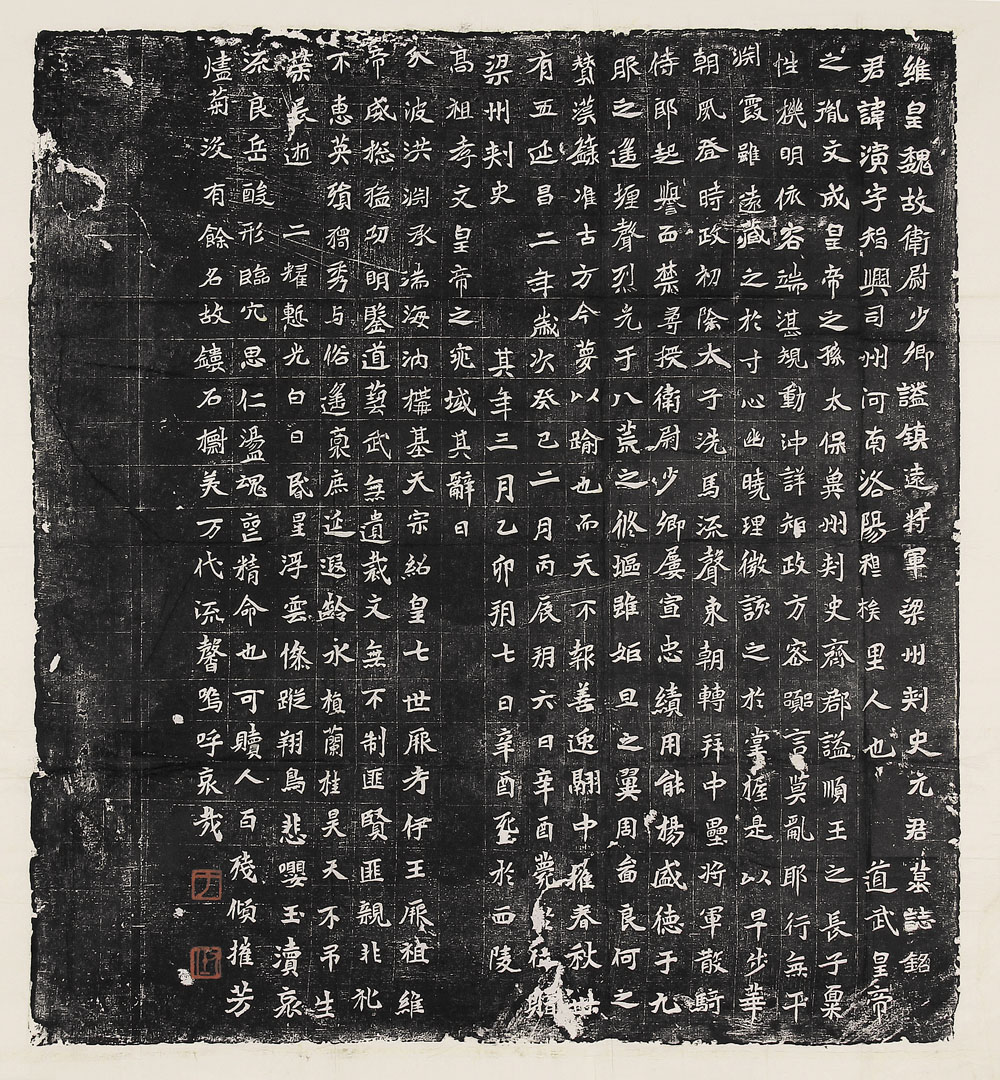 維皇魏故衛尉少卿謚鎮遠將軍梁州刾史元君墓誌銘
君諱演字智興司州河南洛陽穆族里人也 道武皇帝
之胤文成皇帝之孫太保兾州刾史齊郡謚順王之長子稟
性機明依容端湛規動沖詳矩政方密 言莫亂耶行無平
渕霞雖遠藏之於寸心幽曉理微該之於掌握是以早步華
朝夙登時政初除太子洗馬流聲東朝轉拜中壘將軍散騎
侍郎起譽西禁尋授衛尉少卿屢宣忠績用能楊盛德于九
服之遙㕓聲烈光于八荒之外雖姬旦之翼周 良何之
贊漢籙准古方今蔑以踰也而天不報善迊翩中摧春秋卅
有五延昌二年歲次癸巳二月丙辰朔六日辛酉薨 贈
梁州刾史 其年三月乙卯朔七日辛酉 於西陵
高祖孝文皇帝之 域其辭曰
波洪渕承湍海汭構基天宗紹皇七世厥考伊王厥祖維
帝盛 猛 明鑒道藝武無遺裁文無不制匪賢匪親非礼
不惠英 獨秀与俗遙 庶延遐齡永植蘭桂昊天不弔生
榮長逝 二耀慙光白日昏星浮雲倏蹤翔鳥悲嚶玉瀆哀
流良岳酸形臨穴思仁盪魂 精命也可贖人百殘傾摧芳
燼菊沒有餘名故鏤石 美万代流馨嗚呼哀哉